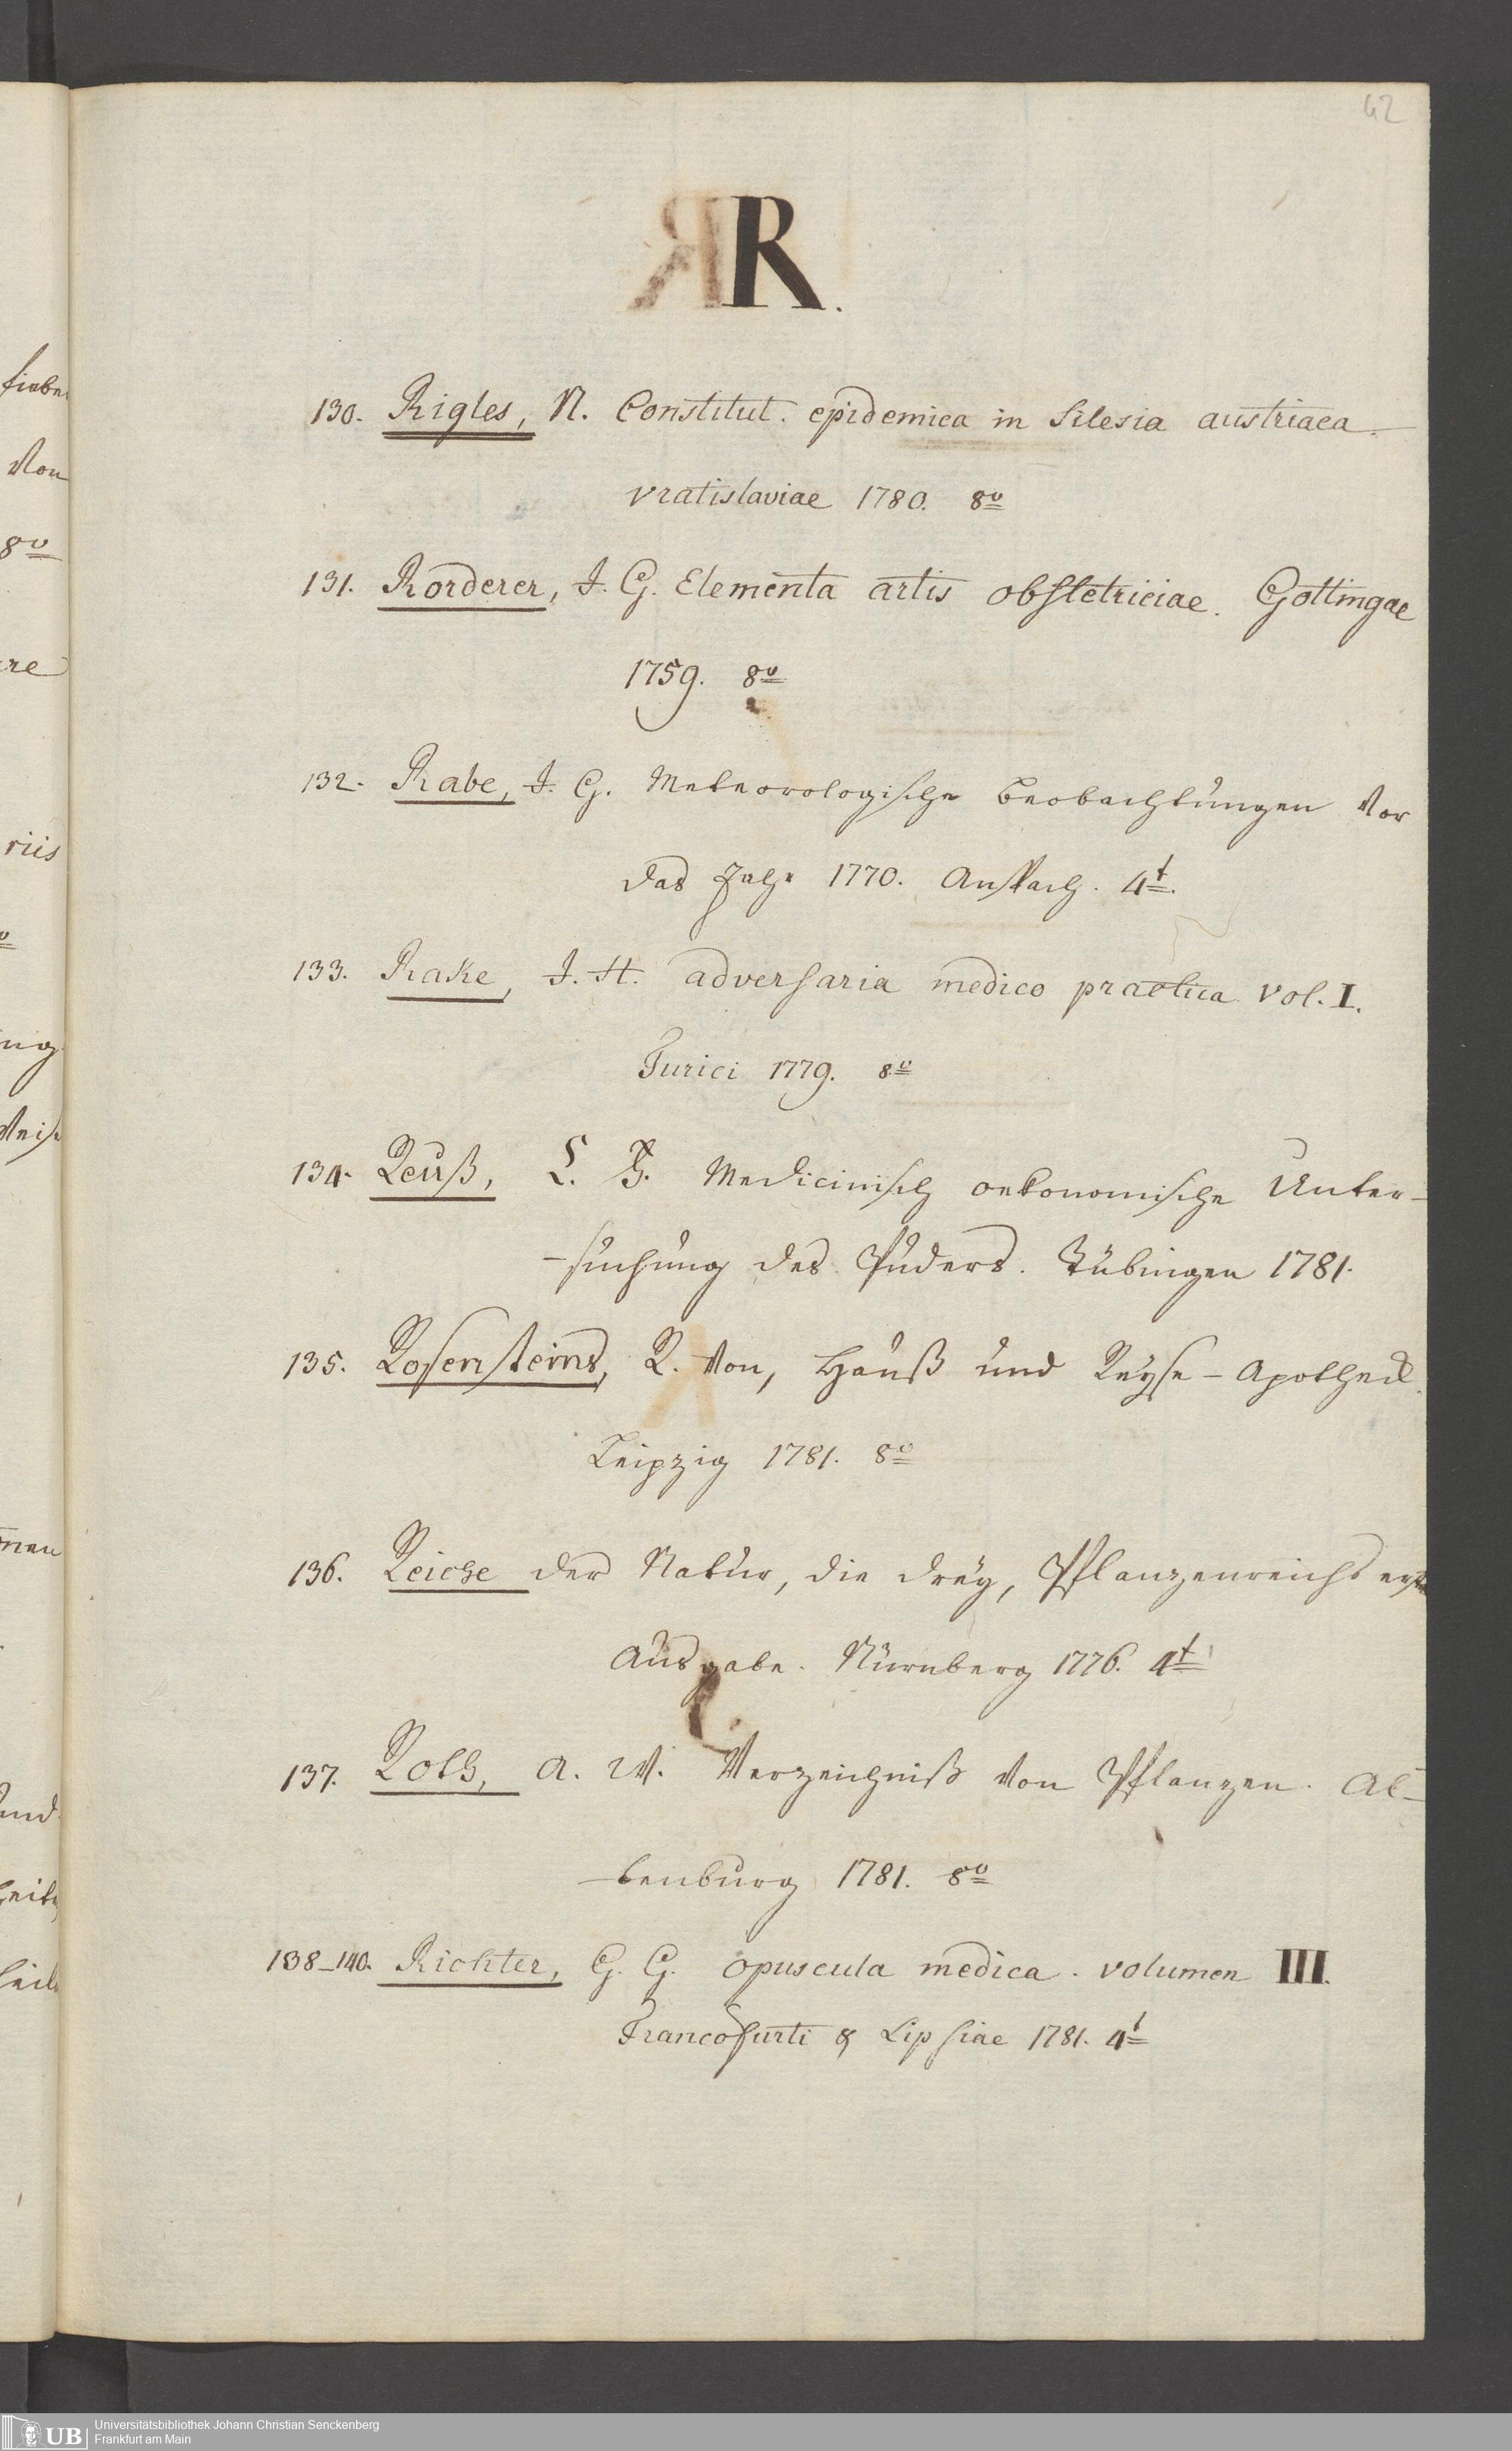 42
R.
130. Rigles, N. Constitut. epidemica in Silesia austriaca
vratislaviae 1780. 8o
131. Rorderer, J. G. Elementa artis obstetriciae. Gottingae
1759. 8o
132. Rabe, J. G. Meteorologische Beobachtungen Vor
das Jahr 1770. Anspach. 4t.
133. Rake, J. H. adversaria medico practica Vol. I.
Turici 1779. 8o
134. Reuß, Medicinisch oekonomische Unter-
-suchung des Puders. Tübingen 1781.
135. Rosensteins, R. von, Hauß und Reyse-Apotheck.
Leipzig 1781. 8o
136. Reiche der Natur, die drey, Pflanzenreichs erste
Ausgabe. Nürnberg 1776. 4t
137. Roth, A. W. Verzeichniß von Pflanzen. Al-
-tenburg 1781. 8o
138-140. Richter, G. G. opuscula medica. volumen III.
Francofurti & Lipsiae 1781. 4t
fieber
Von
8o
re
riis
ung
und
UB
Universitätsbibliothek Johann Christian Senckenberg
Frankfurt am Main